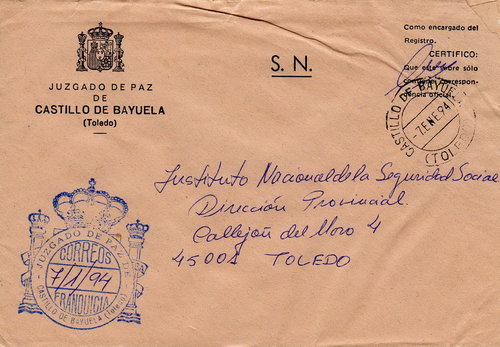 JUZGADO DE PAZ
DE
CASTILLO DE BAYUELA
(Toledo)
S. N.
Como encargado del
Registro.
CERTIFICO:
Que este sobre sólo
contiene correspon-
dencia oficial.
CASTILLO DE BAYUELA
-7.ENE.94
(TOLEDO)
Instituto Nacional de la Seguridad Social
Dirección Provincial.
Callejón del Moro 4
45001 TOLEDO
JUZGADO DE PAZ DE
CORREOS
7/1/94
FRANQUICIA
CASTILLO DE BAYUELA (Toledo)